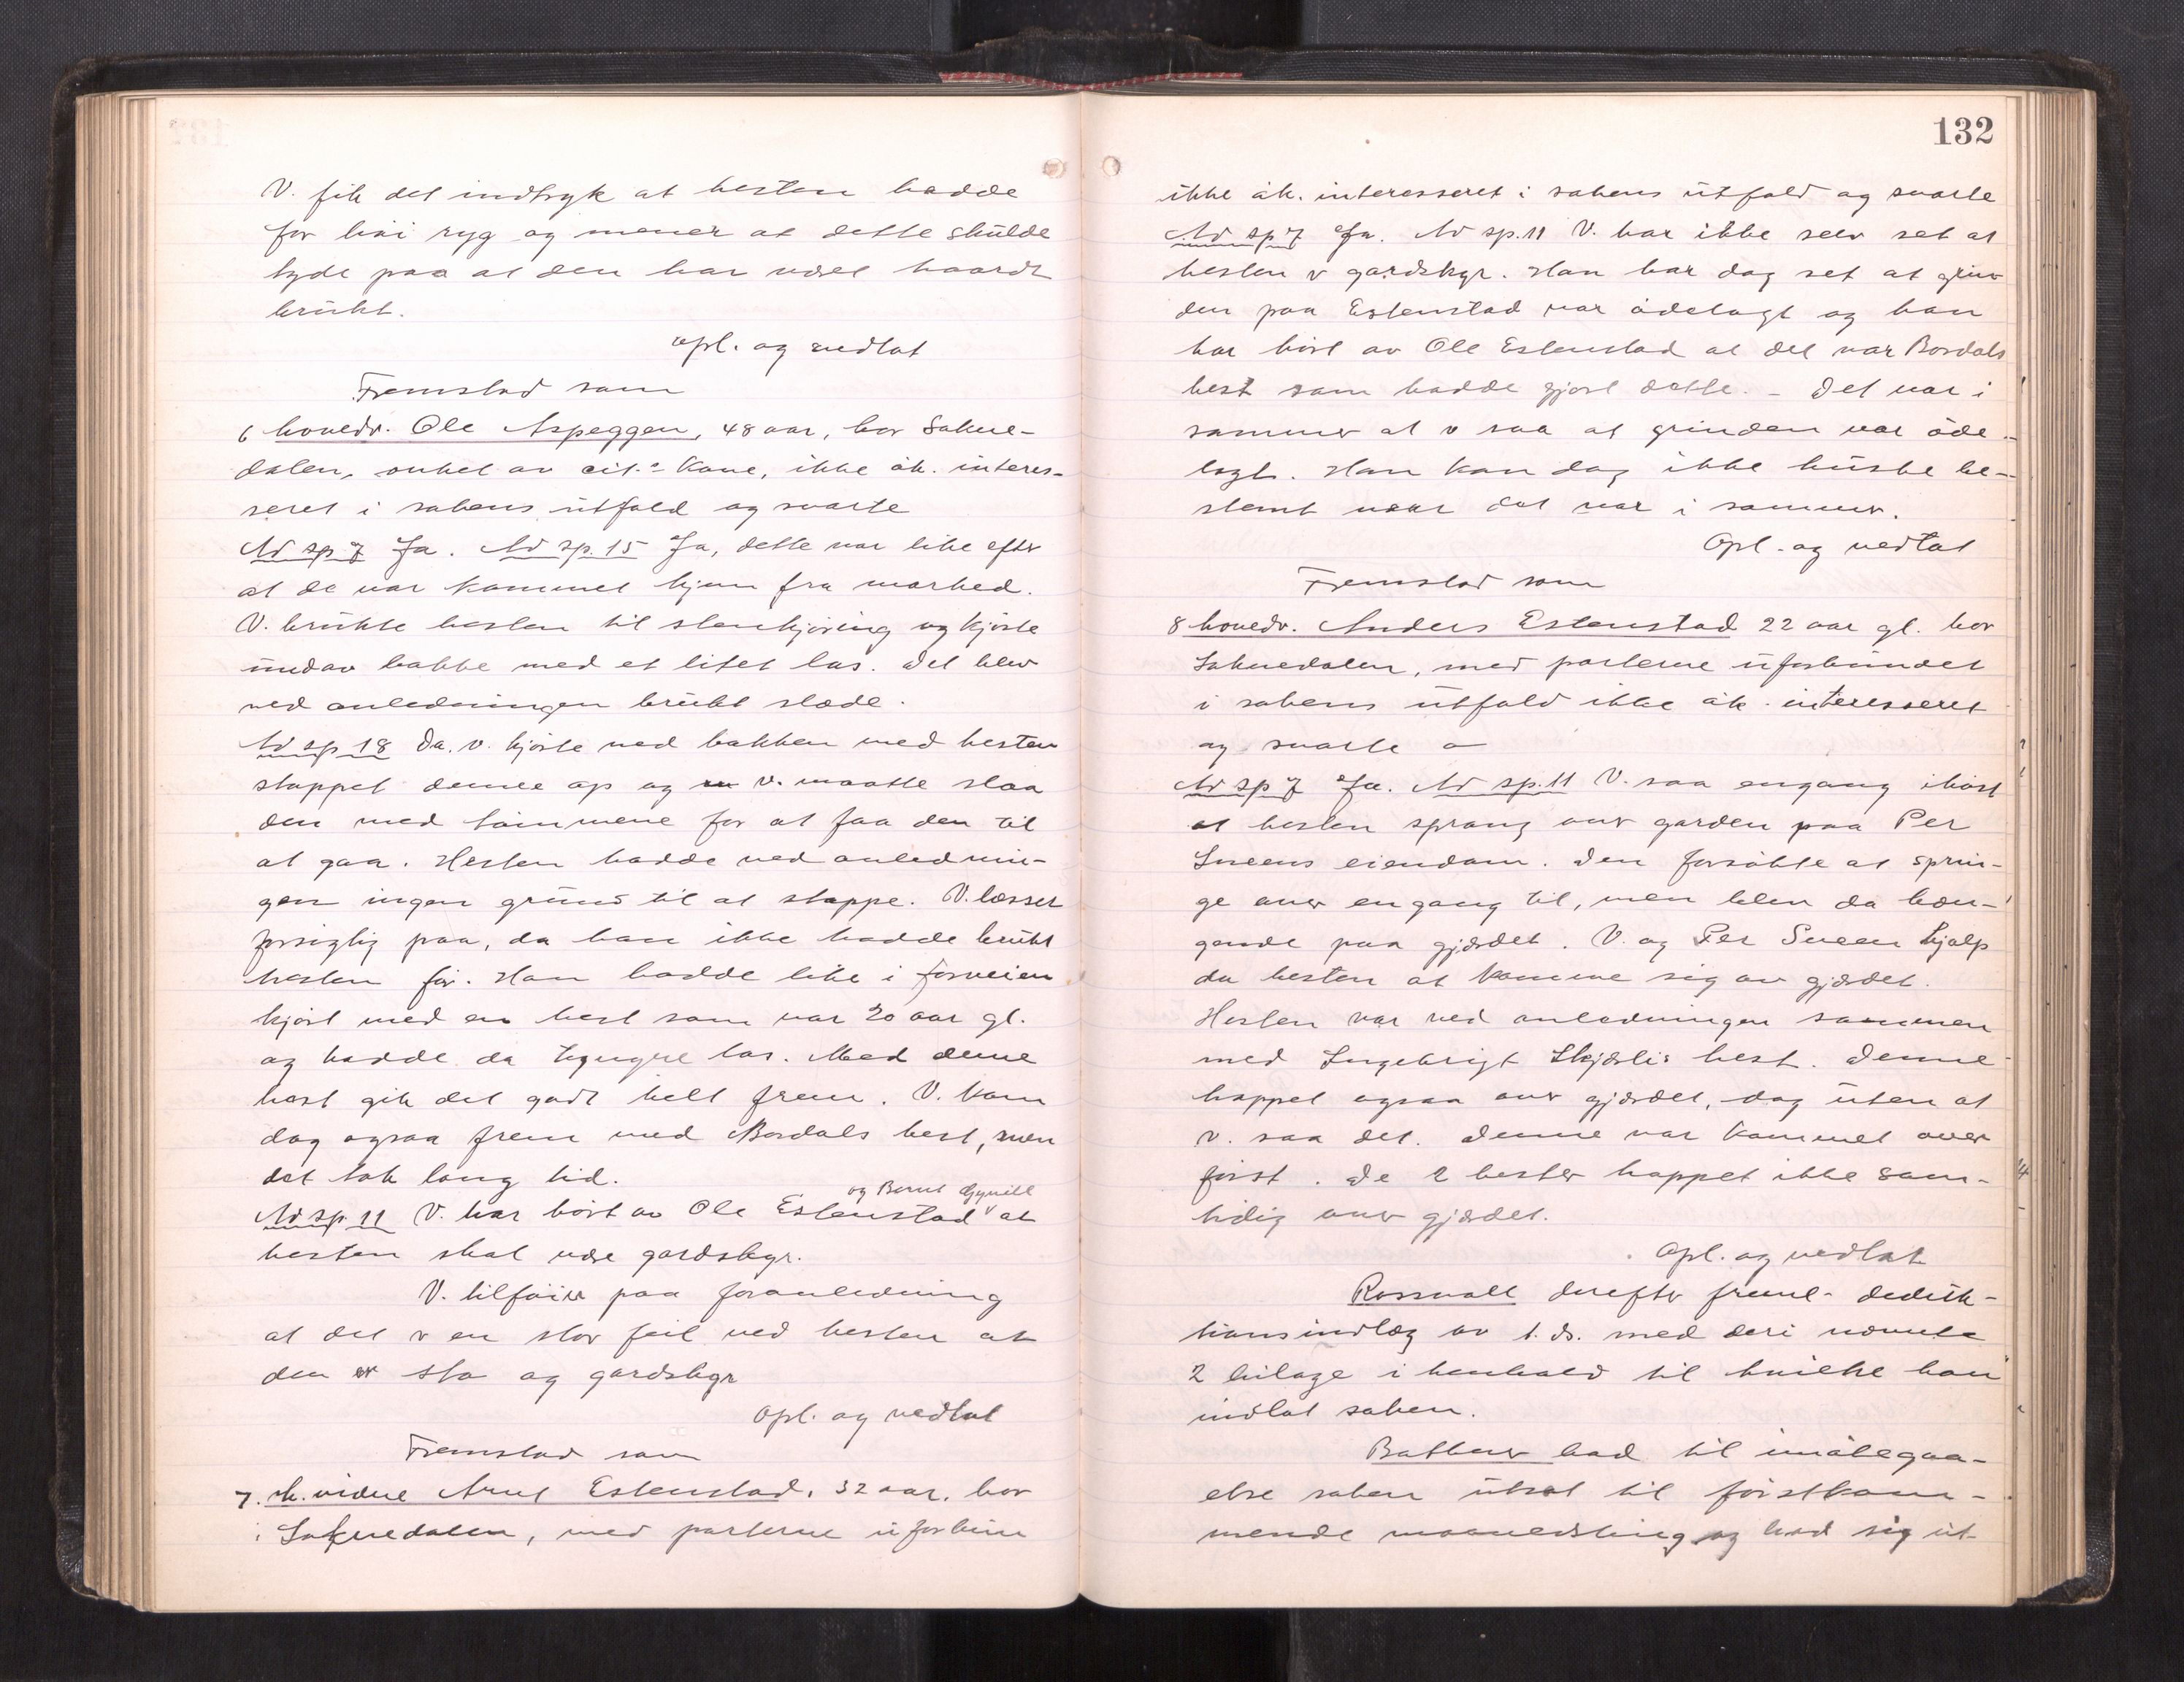 V. fik det indtryk at hesten hadde
for bøi i ryg og mener at dette skulde
tyde paa at den har været haardt
brukt.
Opl. og vedtat
Fremstod som
6 hovedv. Ole Aspeggen, 48 aar, bor Soknedalen,
onkel av cit.s kone, ikke øk. interesseret
i sakens utfald og svarte
Ad sp 7 Ja. Ad sp. 15 Ja, dette var like efter
at de var kommet hjem fra marked.
V. brukte hesten til stenkjøring og kjørte
undav bakke med et litet las. Det blev
ved anledningen brukt slæde.
Ad sp 18 Da v. kjørte ned bakken med hesten
stoppet denne op og v. maatte slaa
den med tømmene for at faa den til
at gaa. Hesten hadde ved anledningen
ingen grund til at stoppe. V. læsset
forsigtig paa, da han ikke hadde brukt
hesten før. Han hadde like i forveien
kjørt med en hest som var 20 aar gl.
og hadde da tyngre las. Med denne
hest gik det godt helt frem. V. kom
dog ogsaa frem med Bordals hest, men
det tok lang tid.
og Bernt
Ad sp. 11 V. har hørt av Ole Estenstad at
hesten skal være gardskyr.
V. tilføier paa foranledning
at det er en stor feil ved hesten at
den er sta og gardskyr
Opl. og vedtat
Fremstod som
7. h. vidne Arnt Estenstad, 32 aar, bor
i Soknedalen, med parterne uforbun
132
ikke øk. interesseret i sakens utfald og svarte
Ad sp 7 Ja. Ad sp. 11 V. har ikke selv set at
hesten er gardskyr. Han har dog set at grin
den paa Estenstad var ødelagt og han
har hørt av Ole Estenstad at det var Bordals
hest som hadde gjort dette. - Det var i
sommer at v saa at grinden var ødelagt.
Han kan dog ikke huske bestemt
naar det var i sommer.
Opl. og vedtat
Fremstod som
8 hovedv. Anders Estenstad 22 aar gl. bor
Soknedalen, med parterne uforbundet
i sakens utfald ikke øk. interesseret
og svarte
Ad sp 7 Ja. Ad sp. 11 V. saa engang ihøst
at hesten sprang over garden paa Per
Sneens eiendom. Den forsøkte at springe
over engang til, men blev da hængende
paa gjærdet. V. og Per Sneen hjalp
da hesten at komme sig av gjærdet.
Hesten var ved anledningen sammen
med Ingebrigt Skjærlis hest. Denne
hoppet ogsaa over gjærdet, dog uten at
v. saa det. Denne var kommet over
først. De 2 hester hoppet ikke samtidig
over gjærdet.
Opl. og vedtat
Rosvall derefter freml. deduktionsindlæg
av 1. ds. med deri nævnte
2 bilage i henhold til hvilke han
indlot saken.
Bather bad til imøtegaaelse
saken utsat til førstkommende
maanedsting og bad sig ut-